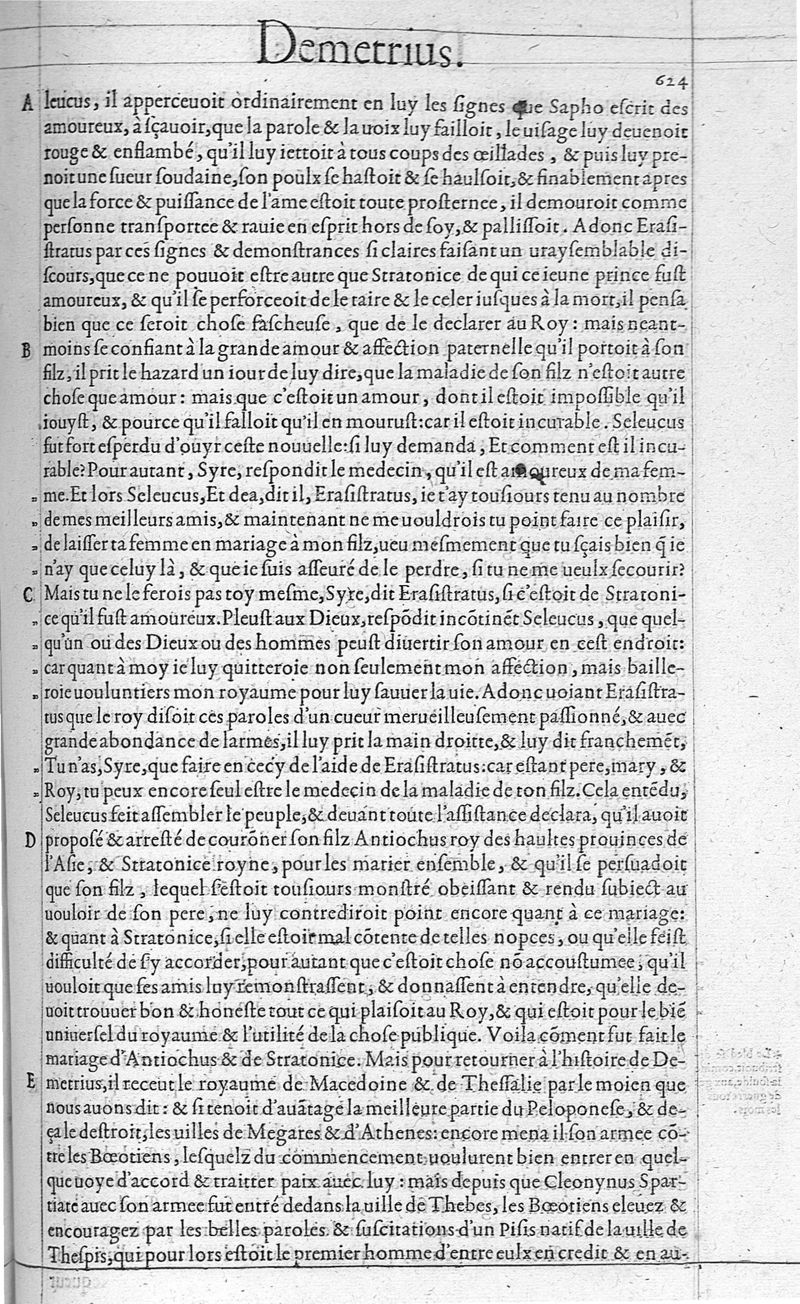 Demetrius.
624
A leucus, il apperceuoit ordinairement en luy les ſignes que Sapho eſcrit des
amoureux, à ſçauoir, que la parole & la uoix luy failloit, le uiſage luy deuenoit
rouge & enflambé, qu'il luy iettoit à tous coups des œillades, & puis luy pre-
noit une ſueur ſoudaine, ſon poulx ſe haſtoit & ſe haulſoit, & finablement apres
que la force & puiſſance de l'ame eſtoit toute proſternee, il demouroit comme
perſonne tranſportee & rauie en eſprit hors de ſoy, & palliſſoit. Adonc Eraſi-
ſtratus par ces ſignes & demonſtrances ſi claires faiſant un urayſemblable di-
ſcours, que ce ne pouuoit eſtre autre que Stratonice de qui ce ieune prince fuſt
amoureux, & qu'il ſe perforceoit de le taire & le celer iuſques à la mort, il penſa
bien que ce ſeroit choſe faſcheuſe, que de le declarer au Roy: mais neant-
B moins ſe confiant à la grande amour & affection paternelle qu'il portoit à ſon
filz, il prit le hazard un iour de luy dire, que la maladie de ſon filz n'eſtoit autre
choſe que amour: mais que c'eſtoit un amour, dont il eſtoit impoſſible qu'il
iouyſt, & pource qu'il falloit qu'il en mouruſt: car il eſtoit incurable. Seleucus
fut fort eſperdu d'ouyr ceſte nouuelle: ſi luy demanda, Et comment eſt il incu-
rable? Pour autant, Syre, reſpondit le medecin, qu'il eſt amoureux de ma fem-
„ me. Et lors Seleucus, Et dea, dit il, Eraſiſtratus, ie t'ay touſiours tenu au nombre
„ de mes meilleurs amis, & maintenant ne me uouldrois tu point faire ce plaiſir,
„ de laiſſer ta femme en mariage à mon filz, ueu meſmement que tu ſçais bien q̃ ie
„ n'ay que celuy là, & que ie ſuis aſſeuré de le perdre, ſi tu ne me ueulx ſecourir?
C Mais tu ne le ferois pas toy meſme, Syre, dit Eraſiſtratus, ſi c'eſtoit de Stratoni-
„ ce qu'il fuſt amoureux. Pleuſt aux Dieux, reſpõdit incõtinẽt Seleucus, que quel-
„ qu'un ou des Dieux ou des hommes peuſt diuertir ſon amour en ceſt endroit:
„ car quant à moy ie luy quitteroie non ſeulement mon affection, mais baille-
„ roie uouluntiers mon royaume pour luy ſauuer la uie. Adonc uoiant Eraſiſtra-
tus que le roy diſoit ces paroles d'un cueur merueilleuſement paſſionné, & auec
grande abondance de larmes, il luy prit la main droitte, & luy dit franchemẽt,
„ Tu n'as, Syre, que faire en cecy de l'aide de Eraſiſtratus: car eſtant pere, mary, &
„ Roy, tu peux encore ſeul eſtre le medecin de la maladie de ton filz. Cela entẽdu,
Seleucus feit aſſembler le peuple, & deuant toute l'aſſiſtance declara, qu'il auoit
D propoſé & arreſté de courõner ſon filz Antiochus roy des haultes prouinces de
l'Aſie, & Stratonice royne, pour les marier enſemble, & qu'il ſe perſuadoit
que ſon filz, lequel s'eſtoit touſiours monſtré obeiſſant & rendu ſubiect au
uouloir de ſon pere, ne luy contrediroit point encore quant à ce mariage:
& quant à Stratonice, ſi elle eſtoit mal cõtente de telles nopces, ou qu'elle feiſt
difficulté de ſ'y accorder, pour autant que c'eſtoit choſe nõ accouſtumee, qu'il
uouloit que ſes amis luy remonſtraſſent, & donnaſſent à entendre, qu'elle de-
uoit trouuer bon & honeſte tout ce qui plaiſoit au Roy, & qui eſtoit pour le biẽ
uniuerſel du royaume & l'utilité de la choſe publique. Voila cõment fut fait le
mariage d'Antiochus & de Stratonice. Mais pour retourner à l'hiſtoire de De-
E metrius, il receut le royaume de Macedoine & de Theſſalie par le moien que
nous auons dit: & ſi tenoit d'auãtage la meilleure partie du Peloponeſe, & de-
ça le deſtroit, les uilles de Megares & d'Athenes: encore mena il ſon armee cõ-
tre les Bœotiens, leſquelz du commencement uoulurent bien entrer en quel-
que uoye d'accord & traitter paix auec luy: mais depuis que Cleonynus Spar-
tiate auec ſon armee fut entré dedans la uille de Thebes, les Bœotiens eleuez &
encouragez par les belles paroles & ſuſcitations d'un Piſis natif de la uille de
Theſpis, qui pour lors eſtoit le premier homme d'entre eulx en credit & en au-